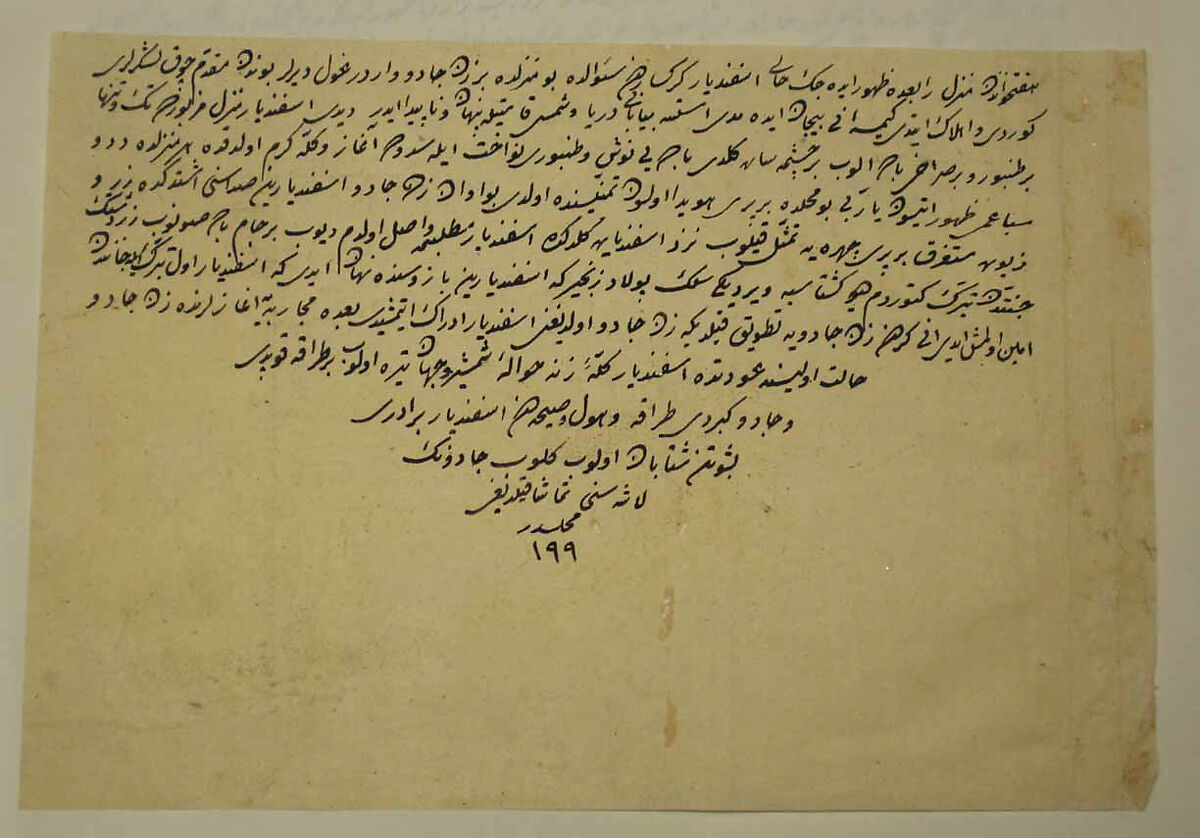 هفتخوانڭ منزل رابعده ظهور ایده جك حالی اسفندیار كركساردن سؤالده بو منزلده بر زن جادو واردر غول دیرلر بوندن مقدم چوق لشكرلری
كوردی و اهلاك ایتدی كیمه انی بیجان ایده مدی استسه بیابانی دریا و شمسی قامتیله پنهان و ناپیدا ایدر دیدی اسفندیار منزل مزبوره تك و تنها
بر طنبور و بر صراحی باده الوب بر چشمه سان كلدی باده یی نوش و طنبوری نواخت ایله سروده آغاز و كله كرم اولدقده هر منزلده دد و
سباعمی ظهور ایتسون یا ربی بو محلده بر پری هویدا اولون تمنیسنده اولدی بو اوان زن جادو اسفندیارین صداسنی اشتدكده بزر و
بر پری چهره یه تمثل قیلوب نزد اسفندیاره كلدكده اسفندیار مطلبمه واصل اولدم دیوب بر جام باده صونوب
جنتدن كتوردم هو كشتاسبه ویردیكی بولاد زنجیر كه اسفندیارین بازوسنده نهان ایدی كه اسفندیار اول
امین اولمش ایدی انی كردن زن جادویه تطویق قیلدیكه زن جادو اولدیغنی اسفندیار ادراك ایتمشدی بعده محاربه یه آغازلرنده زن جادو
حالت اولیسنه عودتده اسفندیار كلهٔ زنه حوالهٔ شمشیر و جهان تیره اولوب بر طراقه قوپدی
و جاد و كبردی طراقه و هول و صیحه دن اسفندیار برادری
بشوتن شتابان اولوب كلوب جادونك
لاشه سنی تماشا قیلدیغی
محلدر
١٩٩